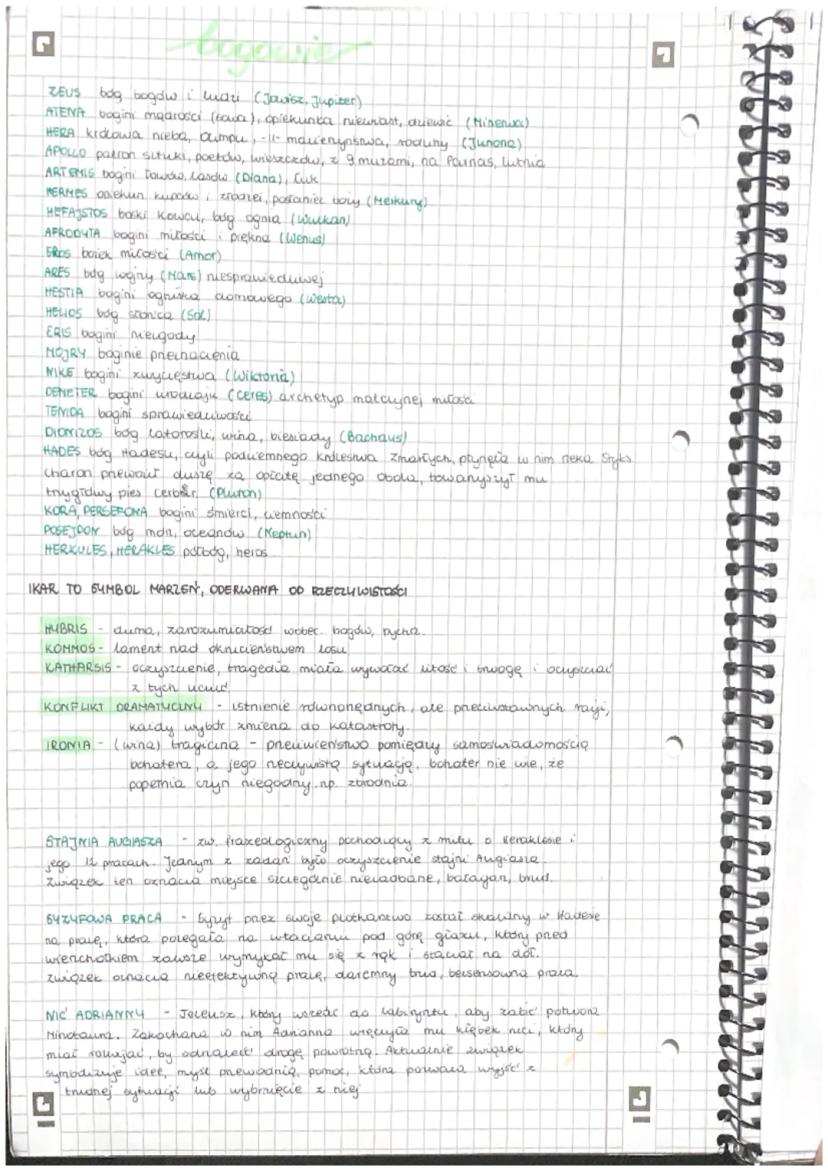 bogowie
ZEUS bóg bogów i ludzi (Jowisz, Jupiter)
ATENA bogini mądrości (sowa), opiekunka niewiast, dziewic (Minerwa)
HERA królowa nieba, Olimpu, -||- małżeństwa, rodziny (Junona)
APOLLO patron sztuki, poetów, wieszczków, z 9 muzami, na Parnas, lutnia
ARTEMIS bogini łowów, lasów (Diana), łuk
HERMES opiekun kupców i złodziei, posłaniec boży (Merkury)
HEFAJSTOS boski kowal, bóg ognia (Wulkan)
AFRODYTA bogini miłości i piękna (Wenus)
EROS bożek miłości (Amor)
ARES bóg wojny (Mars) niesprawiedliwej
HESTIA bogini ogniska domowego (Westa)
HELIOS bóg słońca (Sol)
ERIS bogini niezgody
MOJRY boginie przeznaczenia
NIKE bogini zwycięstwa (Wiktoria)
DEMETER bogini urodzaju (Ceres) archetyp matczynej miłości
TEMIDA bogini sprawiedliwości
DIONIZOS bóg latorośli, wina, biesiady (Bachaus)
HADES bóg Hadesu, czyli podziemnego królestwa zmarłych, płynęła w nim rzeka Styks
charon przewoził duszę za opłatę jednego obola, towarzyszył mu
trzygłowy pies cerber. (Pluton)
KORA, PERSEFONA bogini śmierci, ciemności
POSEJDON bóg mórz, oceanów (Neptun)
HERKULES, HERAKLES półbóg, heros
IKAR TO SYMBOL MARZEŃ, ODERWANIA OD RZECZYWISTOŚCI
HUBRIS - duma, zarozumiałość wobec bogów, pycha.
KOMMOS - lament nad okrucieństwem losu
KATHARSIS - oczyszczenie, tragedia miała wywołać litość i trwogę i oczyszczać
z tych uczuć
KONFLIKT DRAMATYCZNY - istnienie równorzędnych, ale przeciwstawnych racji,
każdy wybór zmierza do katastrofy.
IRONIA - (wina) tragiczna - przeciwieństwo pomiędzy samoświadomością
bohatera, a jego rzeczywistą sytuacją, bohater nie wie, że
popełnia czyn niegodny np. zbrodnia.
STAJNIA AUGIASZA - zw. frazeologiczny pochodzący z mitu o Heraklesie i
jego 12 pracach. Jednym z zadań było oczyszczenie stajni Augiasza.
Związek ten oznacza miejsce szczególnie niezadbane, bałagan, brud.
SYZYFOWA PRACA - Syzyf przez swoje plotkarstwo został skazany w Hadesie
na pracę, która polegała na wtaczaniu pod górę głazu, który przed
wierzchołkiem zawsze wymykał mu się z rąk i staczał na dół.
Związek oznacza nieefektywną pracę, daremny trud, bezsensowna praca.
NIĆ ADRIANNY - Tezeusz, który wszedł do labiryntu, aby zabić potwora
Minotaura. Zakochana w nim Adrianna wręczyła mu kłębek nici, który
miał rozwijać, by odnaleźć drogę powrotną. Aktualnie związek
symbolizuje ideę, myśl przewodnią, pomoc, która pozwala wyjść z
trudnej sytuacji lub wybrnięcie z niej